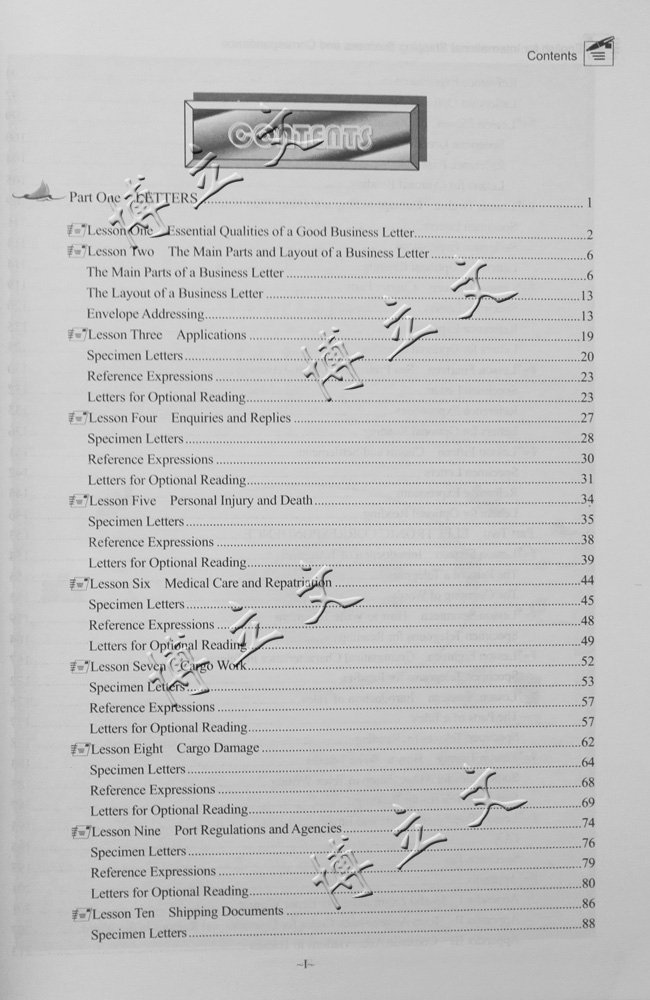 Contents
CONTENTS
Part One LETTERS 1
Lesson One Essential Qualities of a Good Business Letter 2
Lesson Two The Main Parts and Layout of a Business Letter 6
The Main Parts of a Business Letter 6
The Layout of a Business Letter 13
Envelope Addressing 13
Lesson Three Applications 19
Specimen Letters 20
Reference Expressions 23
Letters for Optional Reading 23
Lesson Four Enquiries and Replies 27
Specimen Letters 28
Reference Expressions 30
Letters for Optional Reading 31
Lesson Five Personal Injury and Death 34
Specimen Letters 35
Reference Expressions 38
Letters for Optional Reading 39
Lesson Six Medical Care and Repatriation 44
Specimen Letters 45
Reference Expressions 48
Letters for Optional Reading 49
Lesson Seven Cargo Work 52
Specimen Letters 53
Reference Expressions 57
Letters for Optional Reading 57
Lesson Eight Cargo Damage 62
Specimen Letters 64
Reference Expressions 68
Letters for Optional Reading 69
Lesson Nine Port Regulations and Agencies 74
Specimen Letters 76
Reference Expressions 79
Letters for Optional Reading 80
Lesson Ten Shipping Documents 86
Specimen Letters 88
~I~
博立文
博立文
博立文
博立文